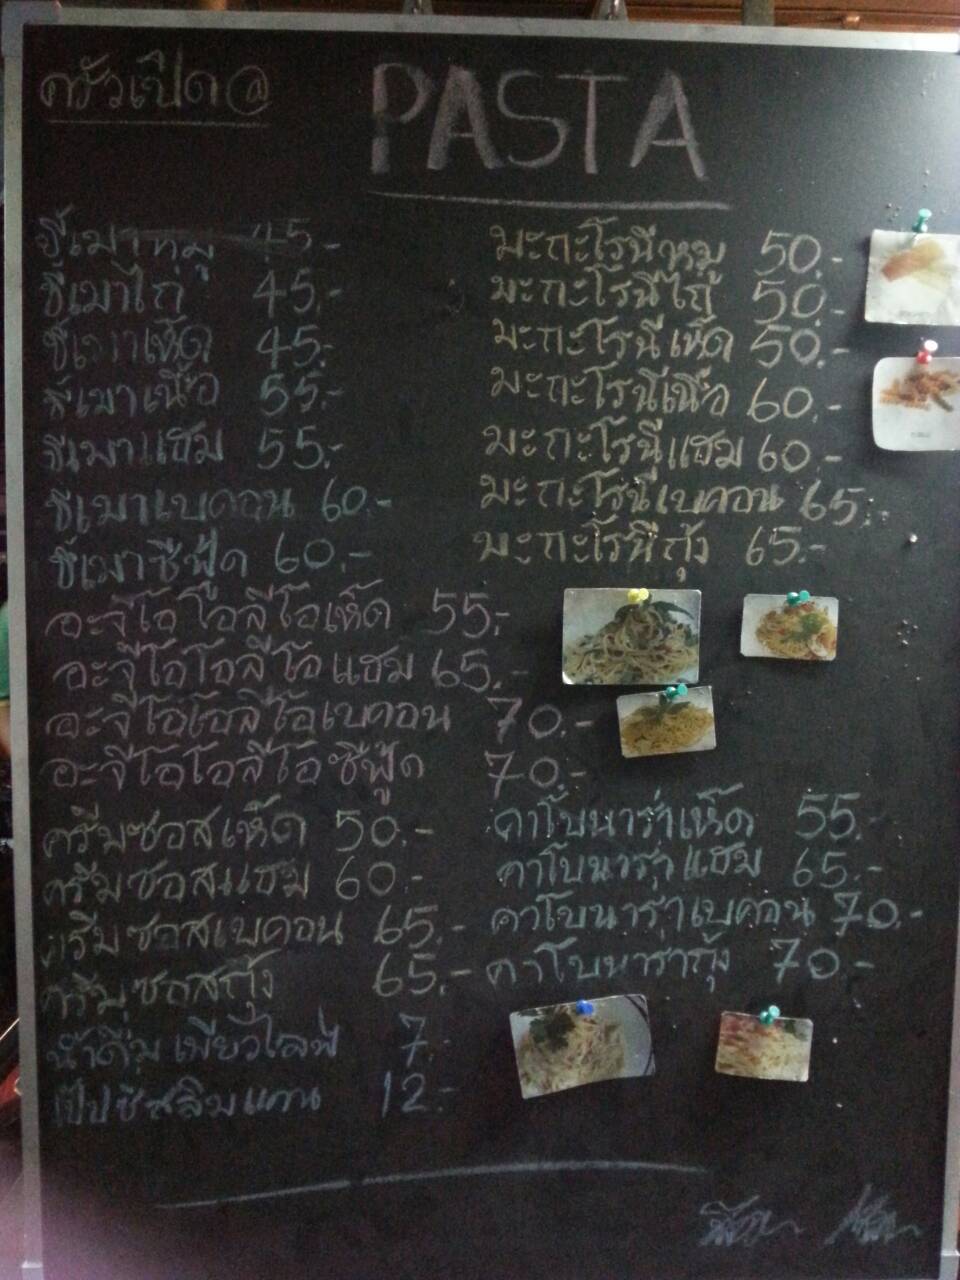 ครัวเปิด@
PASTA
ขี้เมาหมู 45.-
ขี้เมาไก่ 45.-
ขี้เมาเห็ด 45.-
ขี้เมาเนื้อ 55.-
ขี้เมาแฮม 55.-
ขี้เมาเบคอน 60.-
ขี้เมาซีฟู้ด 60.-
มะกะโรนีหมู 50.-
มะกะโรนีไก่ 50.-
มะกะโรนีเห็ด 50.-
มะกะโรนีเนื้อ 60.-
มะกะโรนีแฮม 60.-
มะกะโรนีเบคอน 65.-
มะกะโรนีกุ้ง 65.-
อะจีโอโอลีโอเห็ด 55.-
อะจีโอโอลีโอแฮม 65.-
อะจีโอโอลีโอเบคอน 70.-
อะจีโอโอลีโอซีฟู้ด 70.-
ครีมซอสเห็ด 50.-
ครีมซอสแฮม 60.-
ครีมซอสเบคอน 65.-
ครีมซอสกุ้ง 65.-
คาโบนาร่าเห็ด 55.-
คาโบนาร่าแฮม 65.-
คาโบนาร่าเบคอน 70.-
คาโบนาร่ากุ้ง 70.-
น้ำดื่มเพียวไลฟ์ 7.-
เป๊ปซี่สลิมแคน 12.-